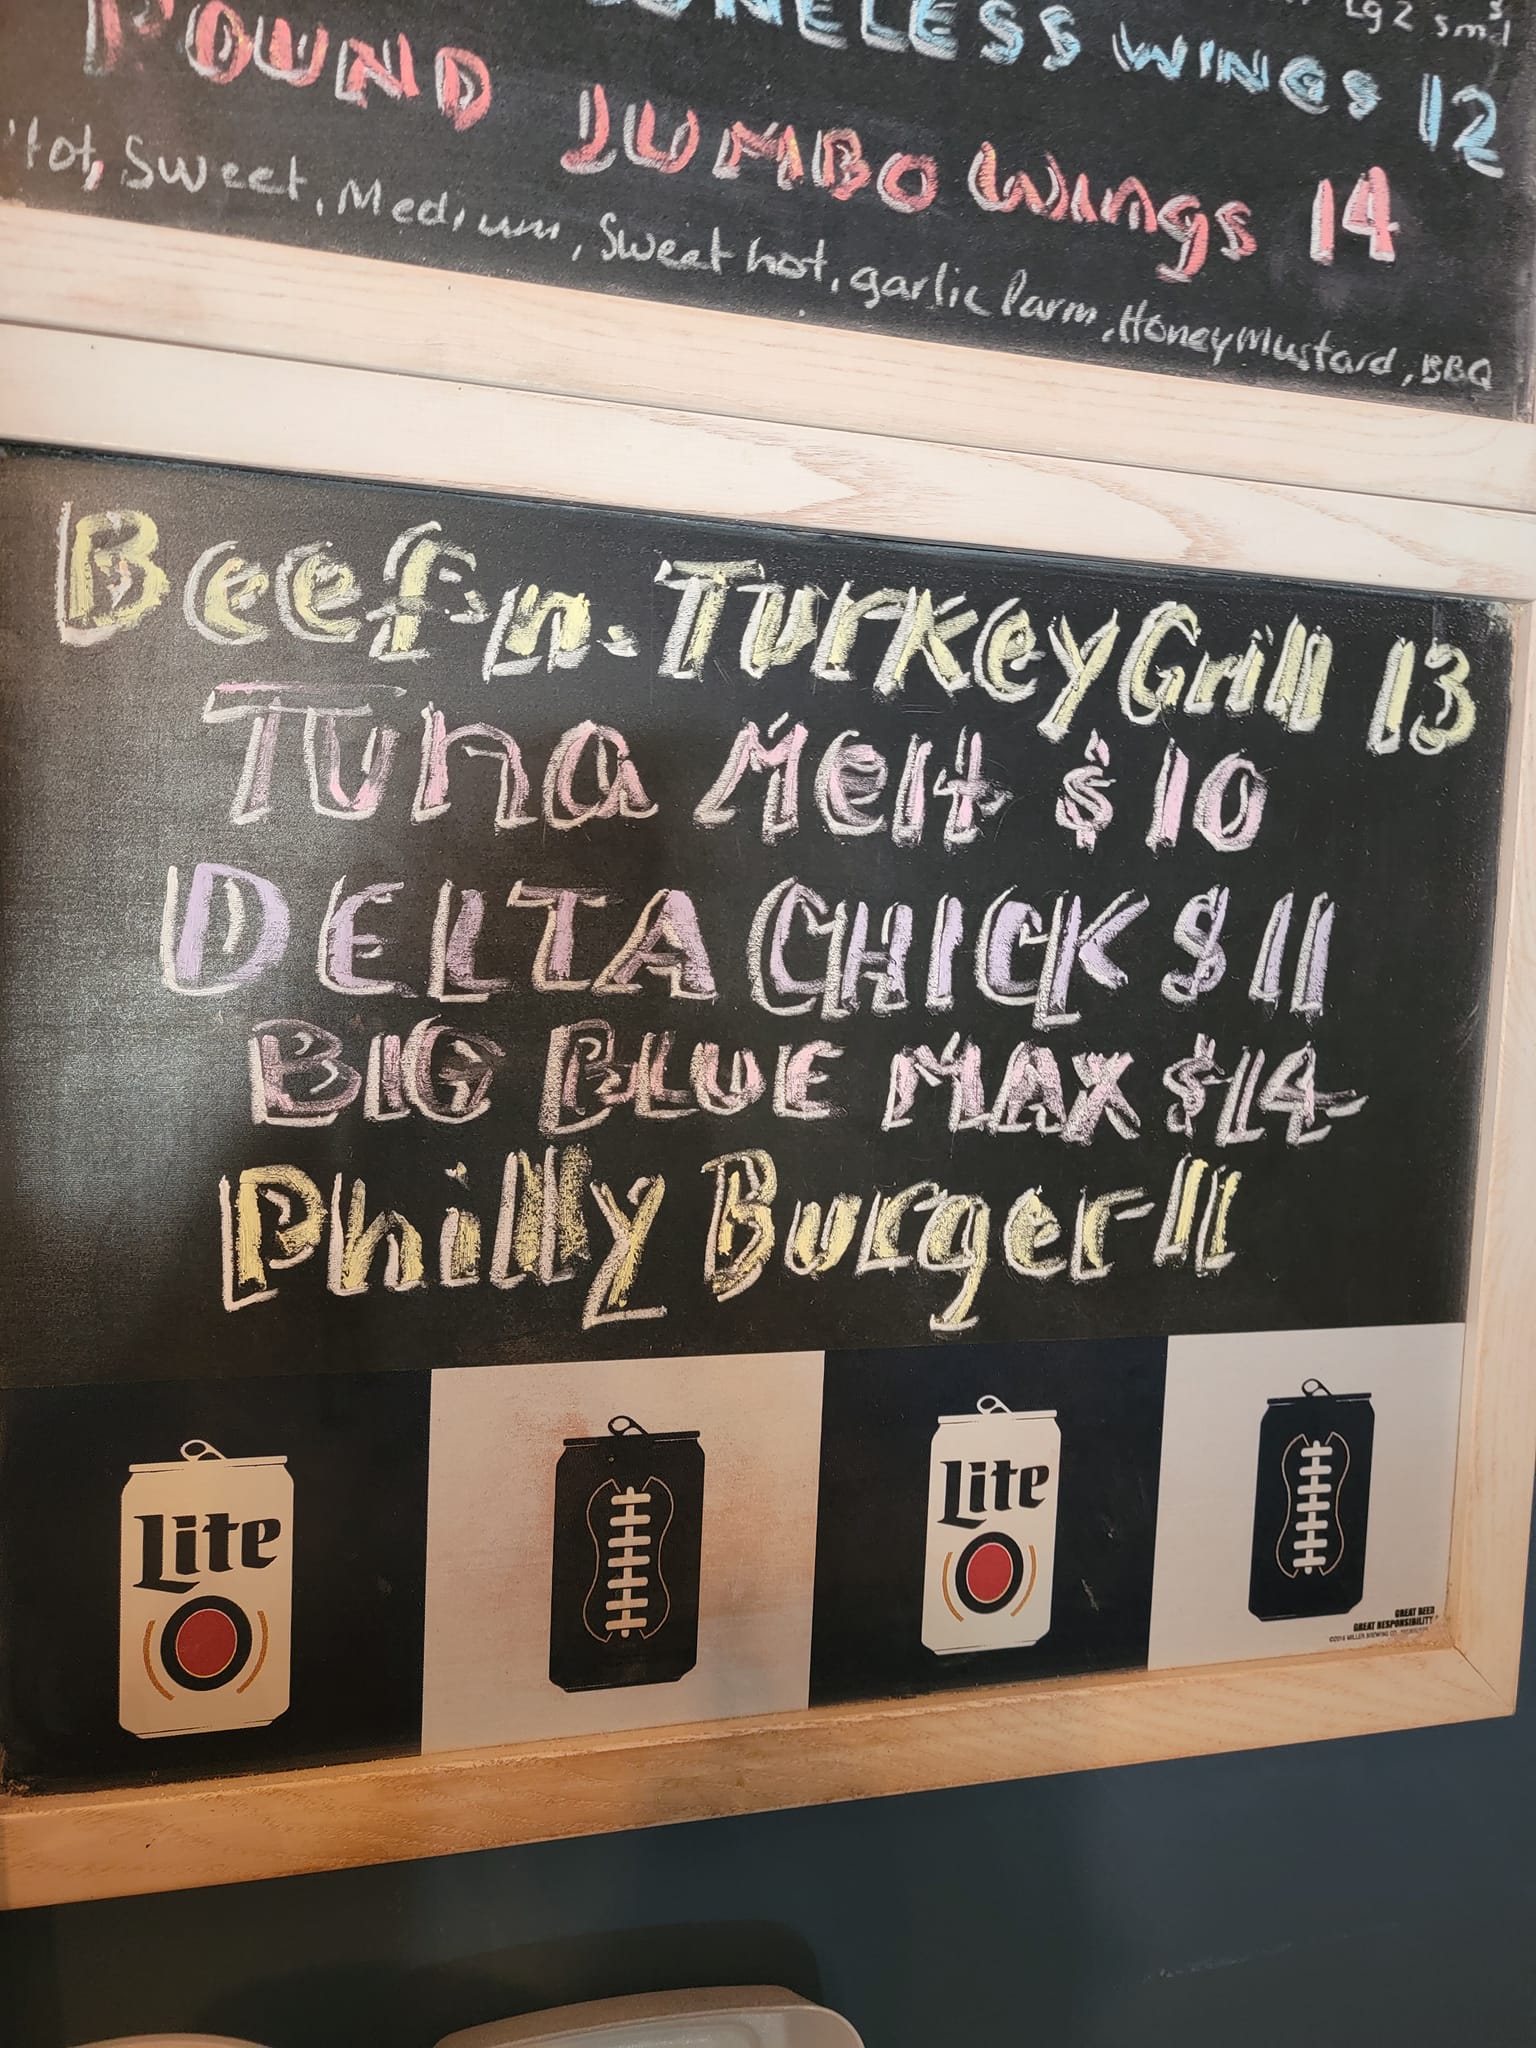 Lg 2 sm 1
BONELESS WINGS 12
POUND JUMBO Wings 14
Hot, Sweet, Medium, Sweet hot, garlic Parm, Honey Mustard, BBQ
Beef-n-Turkey Grill 13
Tuna Melt $10
DELTA CHICK $11
BIG BLUE MAX $14
Philly Burger 11
Lite
Lite
GREAT BEER
GREAT RESPONSIBILITY
MILLER BREWING CO.